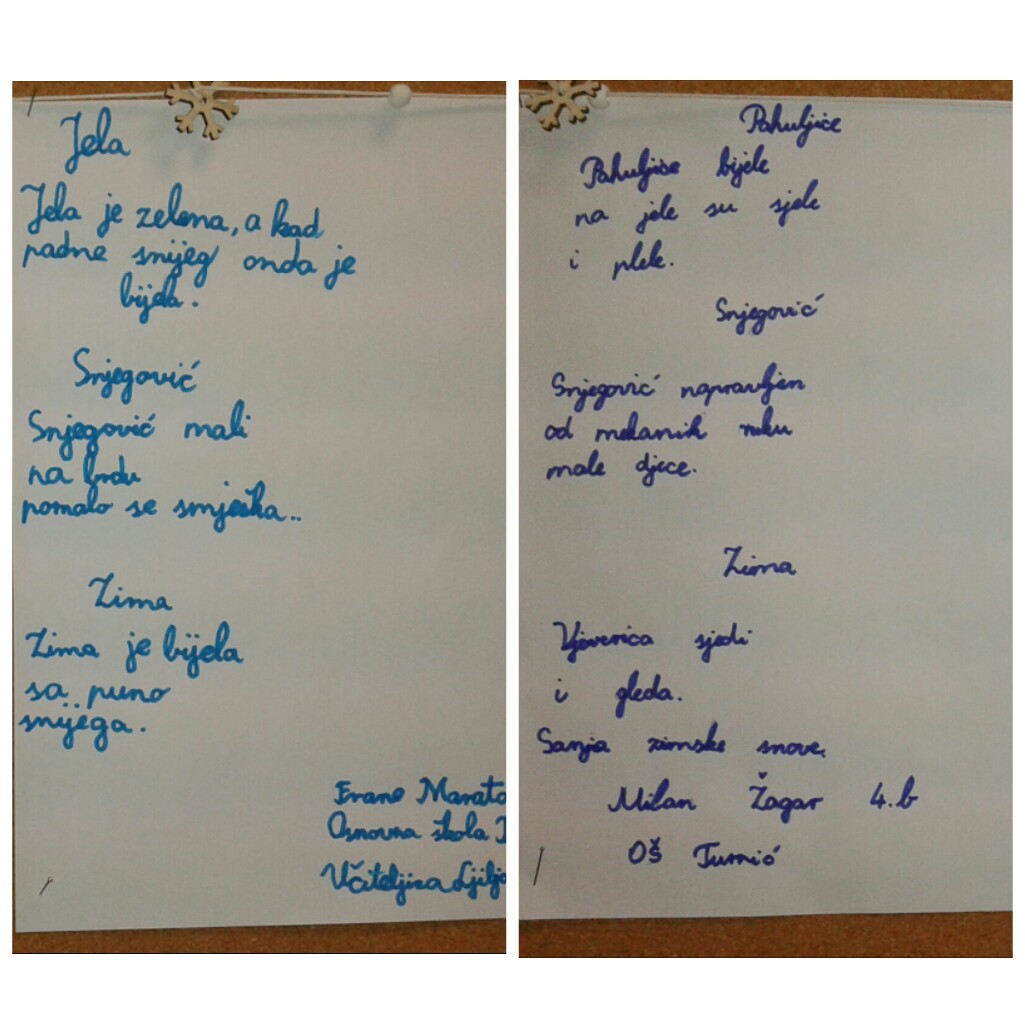 Jela
Jela je zelena, a kad
padne snijeg onda je
bijela.
Snjegović
Snjegović mali
na brdu
pomalo se smješka..
Zima
Zima je bijela
sa puno
snijega.
Frane Marato
Osnovna škola
Učiteljica Ljilja
Pahuljice
Pahuljice bijele
na jele su sjele
i plele.
Snjegović
Snjegović napravljen
od mekanih ruku
male djece.
Zima
Vjeverica sjedi
i gleda.
Sanja zimske snove.
Milan Žagar 4.b
OŠ Turnić